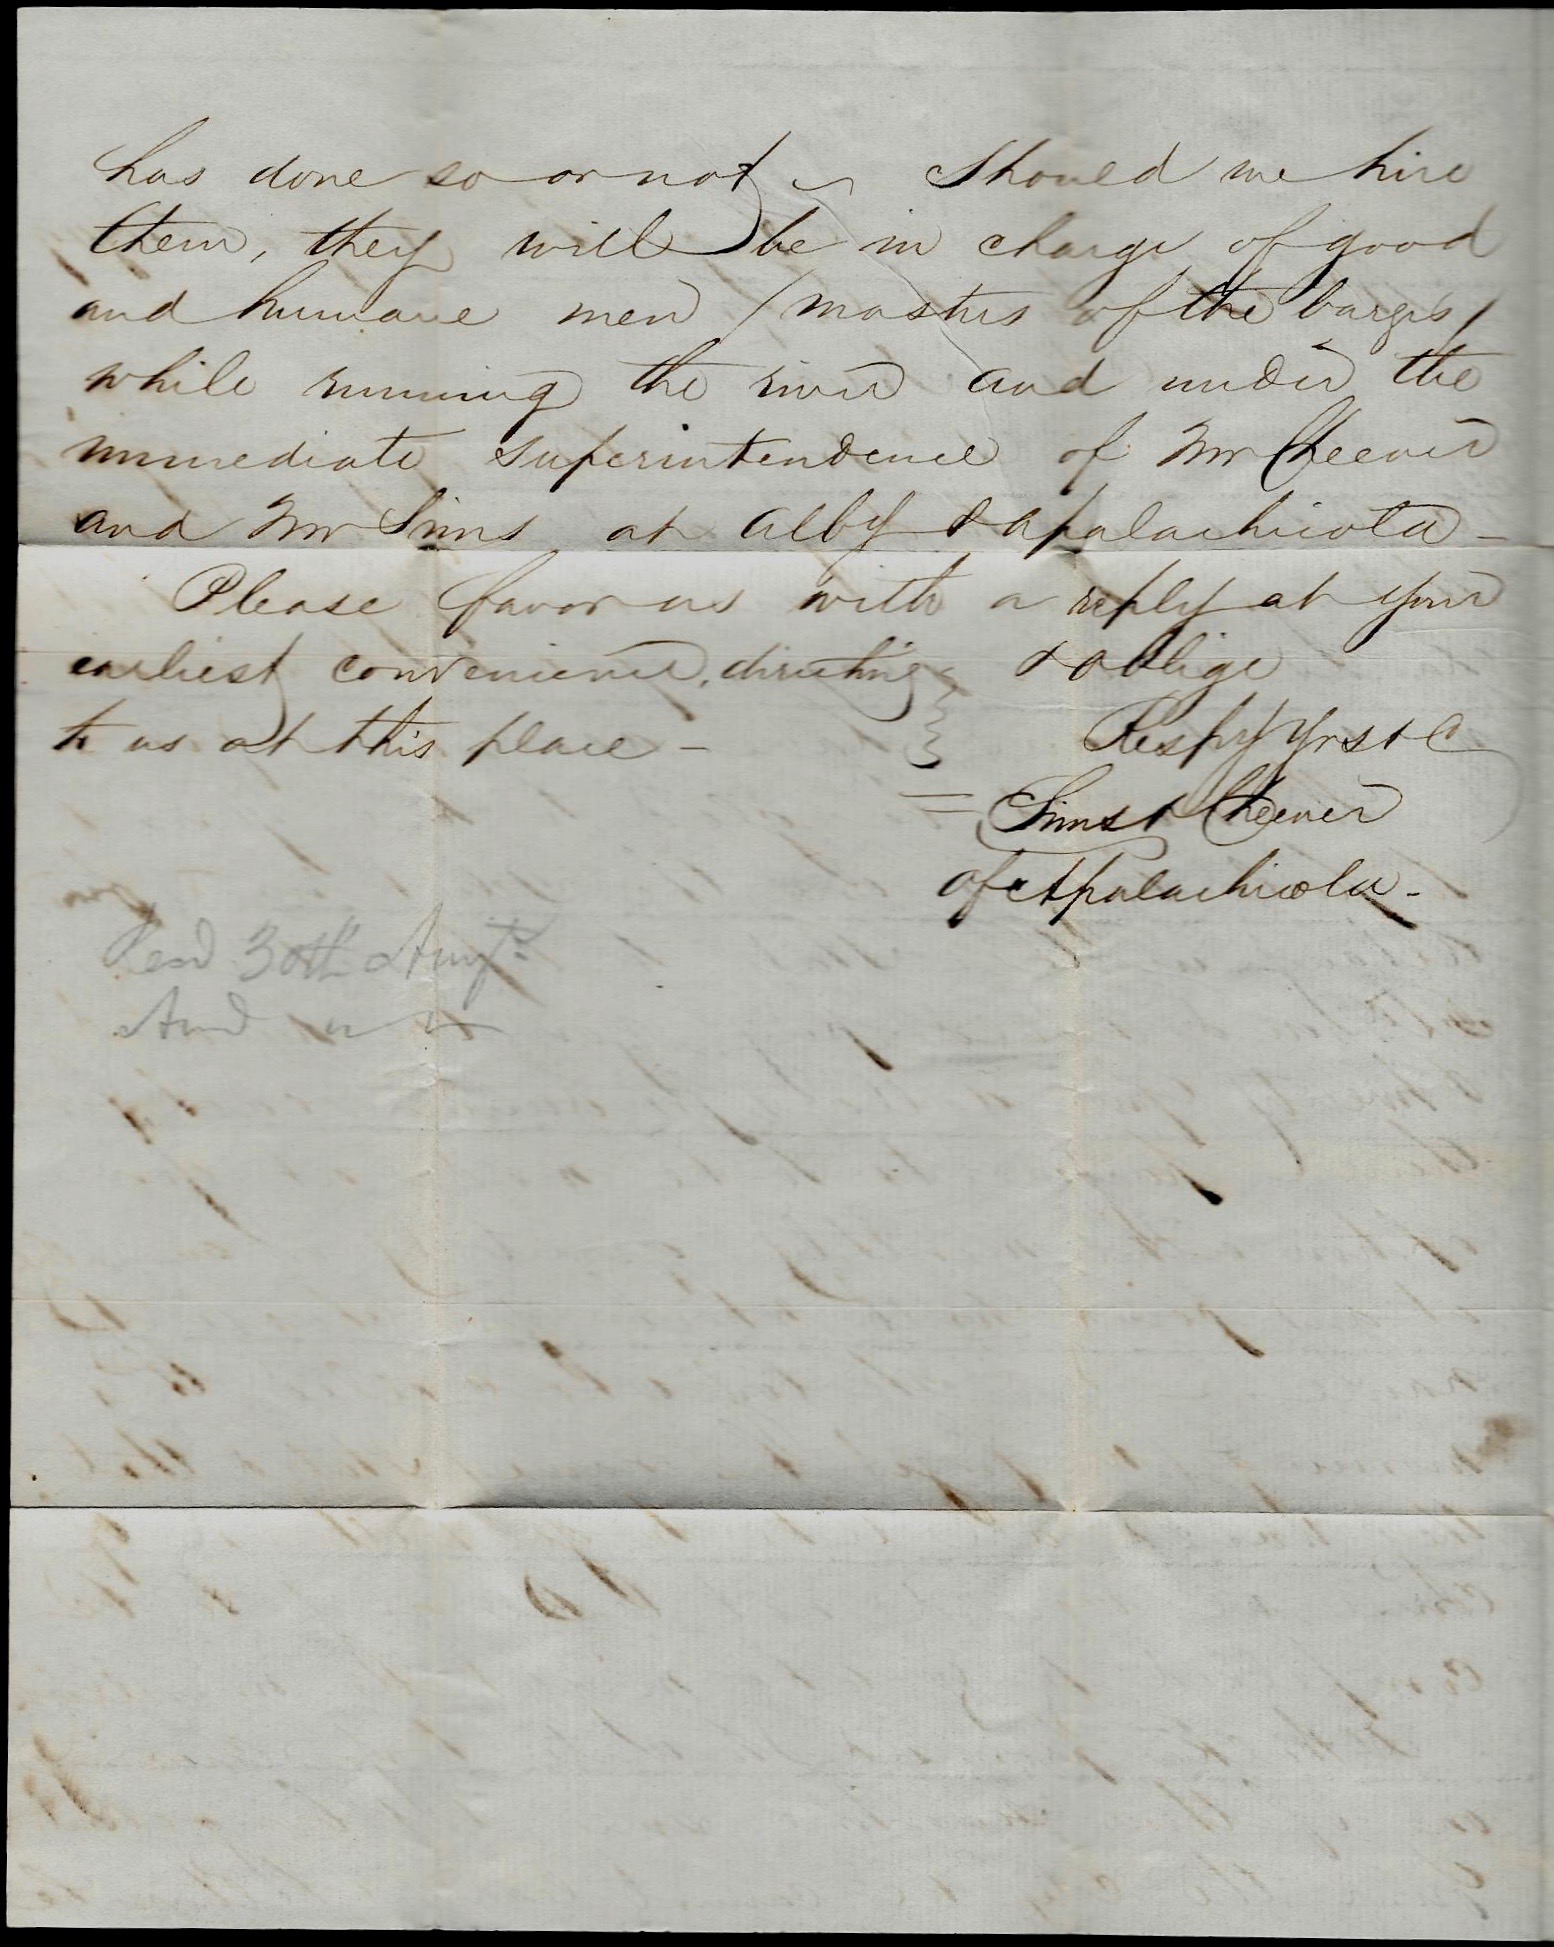 has done so or not ~ Should we hire
them, they will be in charge of good
and humane men / masters of the barges /
while running the river and under the
immediate superintendence of Mr Cheever
and Mr Sims at Alby & Apalachicola -
Please favor us with a reply at your
earliest convenience, directing & oblige
to us at this place -
Respy Yrs & C
= Sims & Cheever
of Apalachicola -
Recd 30th Augt
Ansd " "